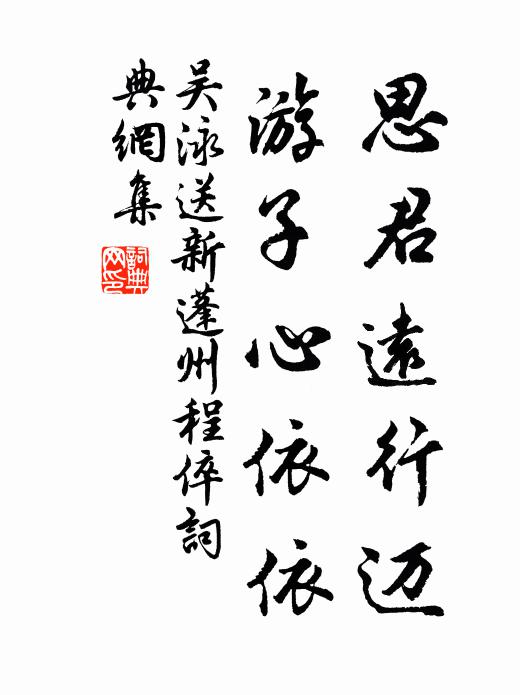 思君遠行迈
游子心依依
吴泳送新蓬州程倅詞
典網集
詞典网印